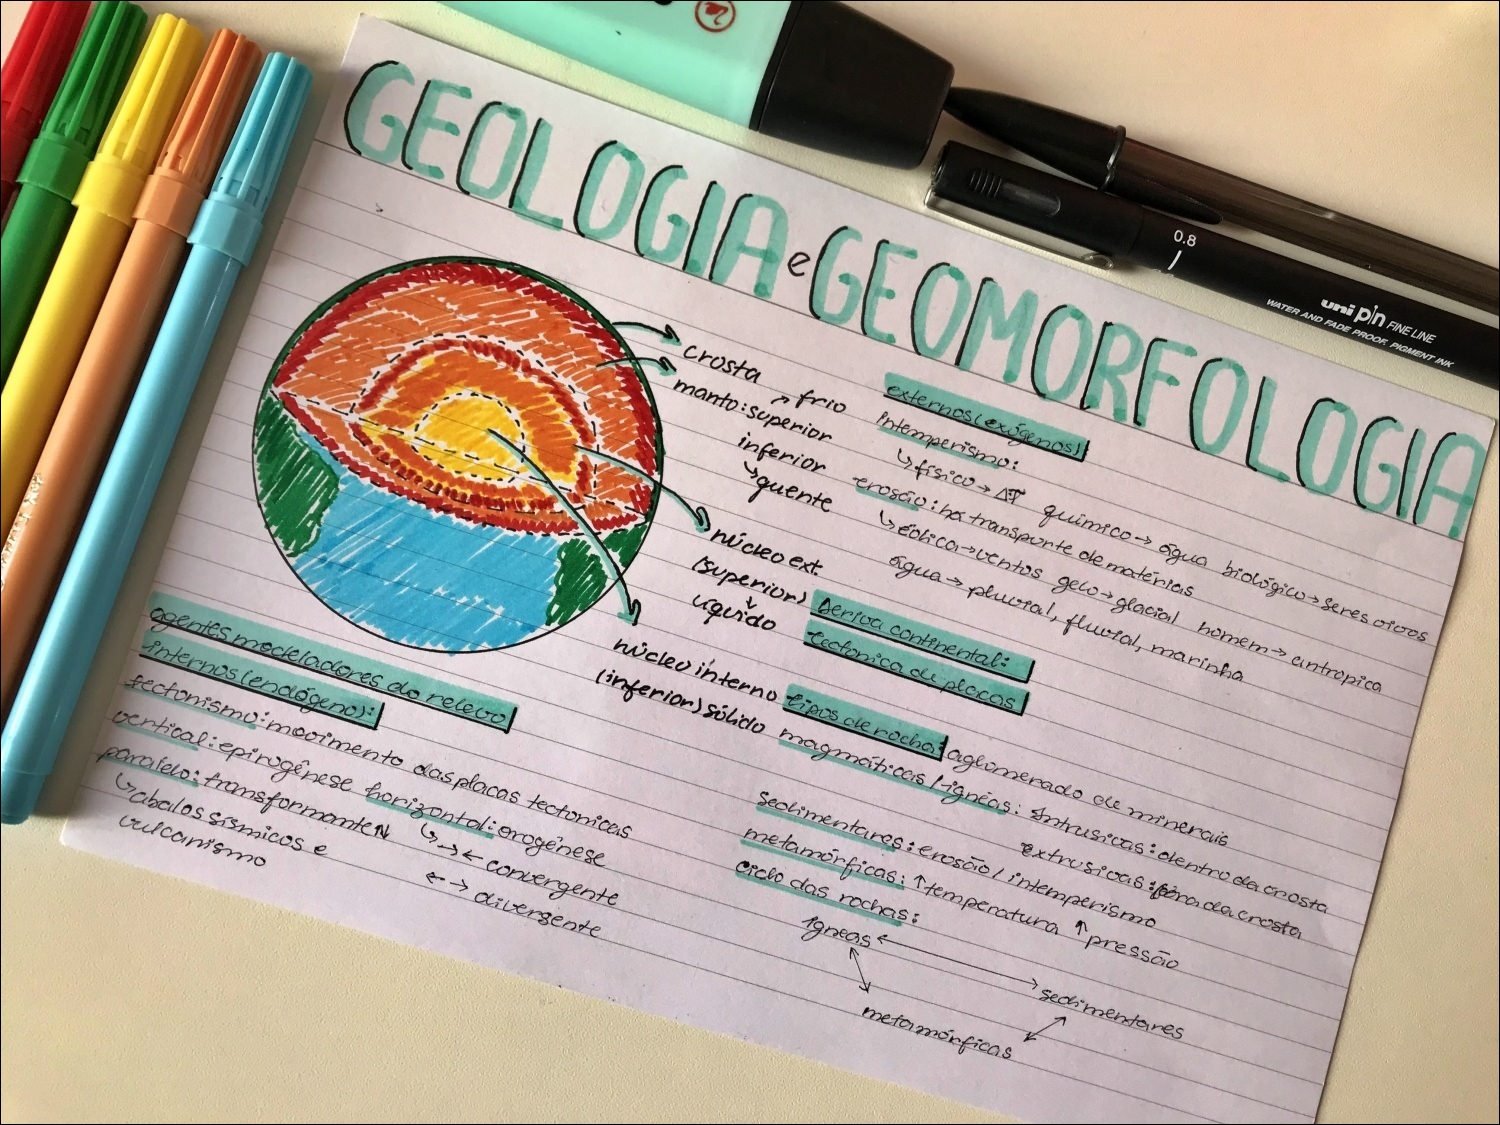 GEOLOGIA e GEOMORFOLOGIA
0.8
uni pin FINE LINE
WATER AND FADE PROOF, PIGMENT INK
crosta
manto: superior → frio
inferior
↳ quente
núcleo ext.
(superior)
líquido
núcleo interno
(inferior) sólido
externos (exógenos)
intemperismo:
↳ físico → ΔT químico → água biológico → seres vivos
erosão: há transporte de matérias
↳ eólica → ventos gelo → glacial homem → antropica
água → pluvial, fluvial, marinha
Deriva continental:
tectonica de placas
tipos de rocha: aglomerado de minerais
magmáticas / ígnéas: intrusicas: dentro da crosta
extrusicas: fora da crosta
sedimentares: erosão / intemperismo
metamórficas: ↑ temperatura ↑ pressão
ciclo das rochas:
ígneas
sedimentares
metamórficas
agentes modeladores do relevo
internos (endógeno):
tectonismo: movimento das placas tectonicas
vertical: epirogênese horizontal: orogênese
paralelo: transformante ↳ →← convergente
↳ abalos sísmicos e ←→ divergente
vulcanismo